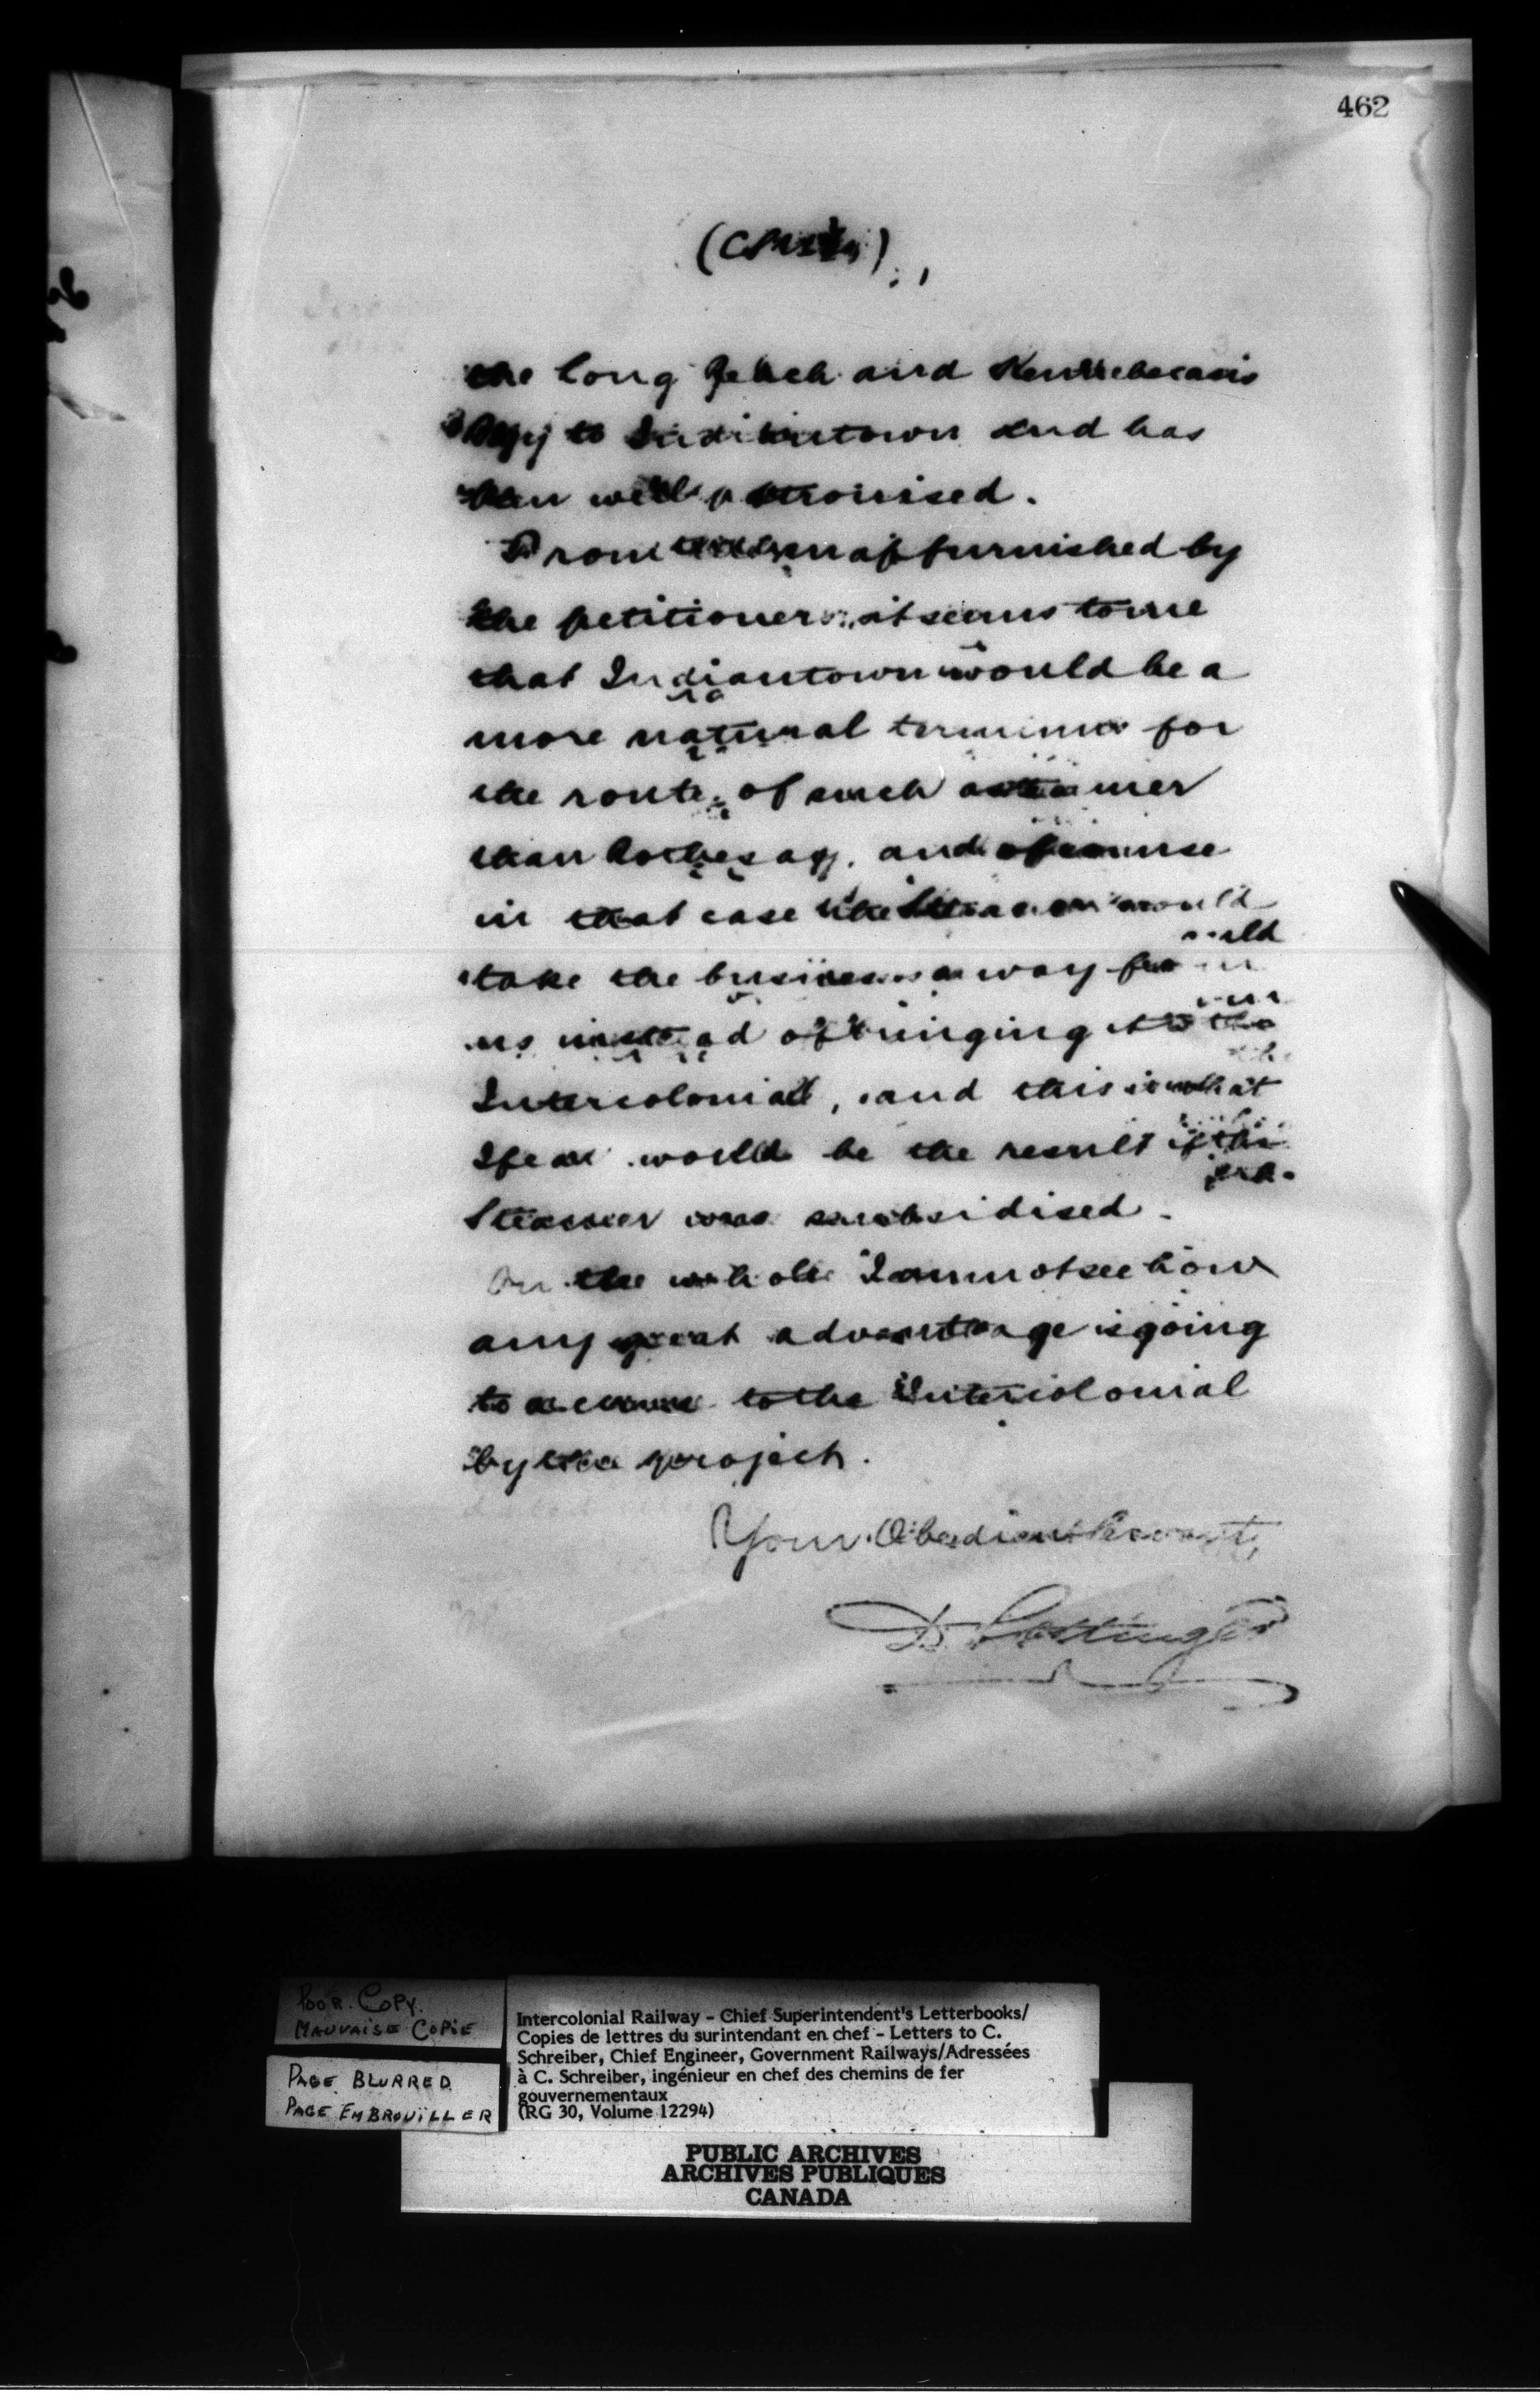 462
the long Reach and Kennebecasis
Bay to Indiantown and has
been well patronised.
From the map furnished by
the petitioners it seems to me
that Indiantown would be a
more natural terminus for
the route of such a steamer
than Rothesay, and of course
in that case the Steamer would
take the business away from
us instead of bringing it to the
Intercolonial, and this is what
I fear would be the result if the
Steamer was subsidised.
On the whole I cannot see how
any great advantage is going
to accrue to the Intercolonial
by the project.
Your Obedient Servant,
D. Pottinger
POOR COPY.
MAUVAISE COPIE
PAGE BLURRED
PAGE EMBROUILLER
Intercolonial Railway – Chief Superintendent's Letterbooks/
Copies de lettres du surintendant en chef – Letters to C.
Schreiber, Chief Engineer, Government Railways/Adressées
à C. Schreiber, ingénieur en chef des chemins de fer
gouvernementaux
(RG 30, Volume 12294)
PUBLIC ARCHIVES
ARCHIVES PUBLIQUES
CANADA